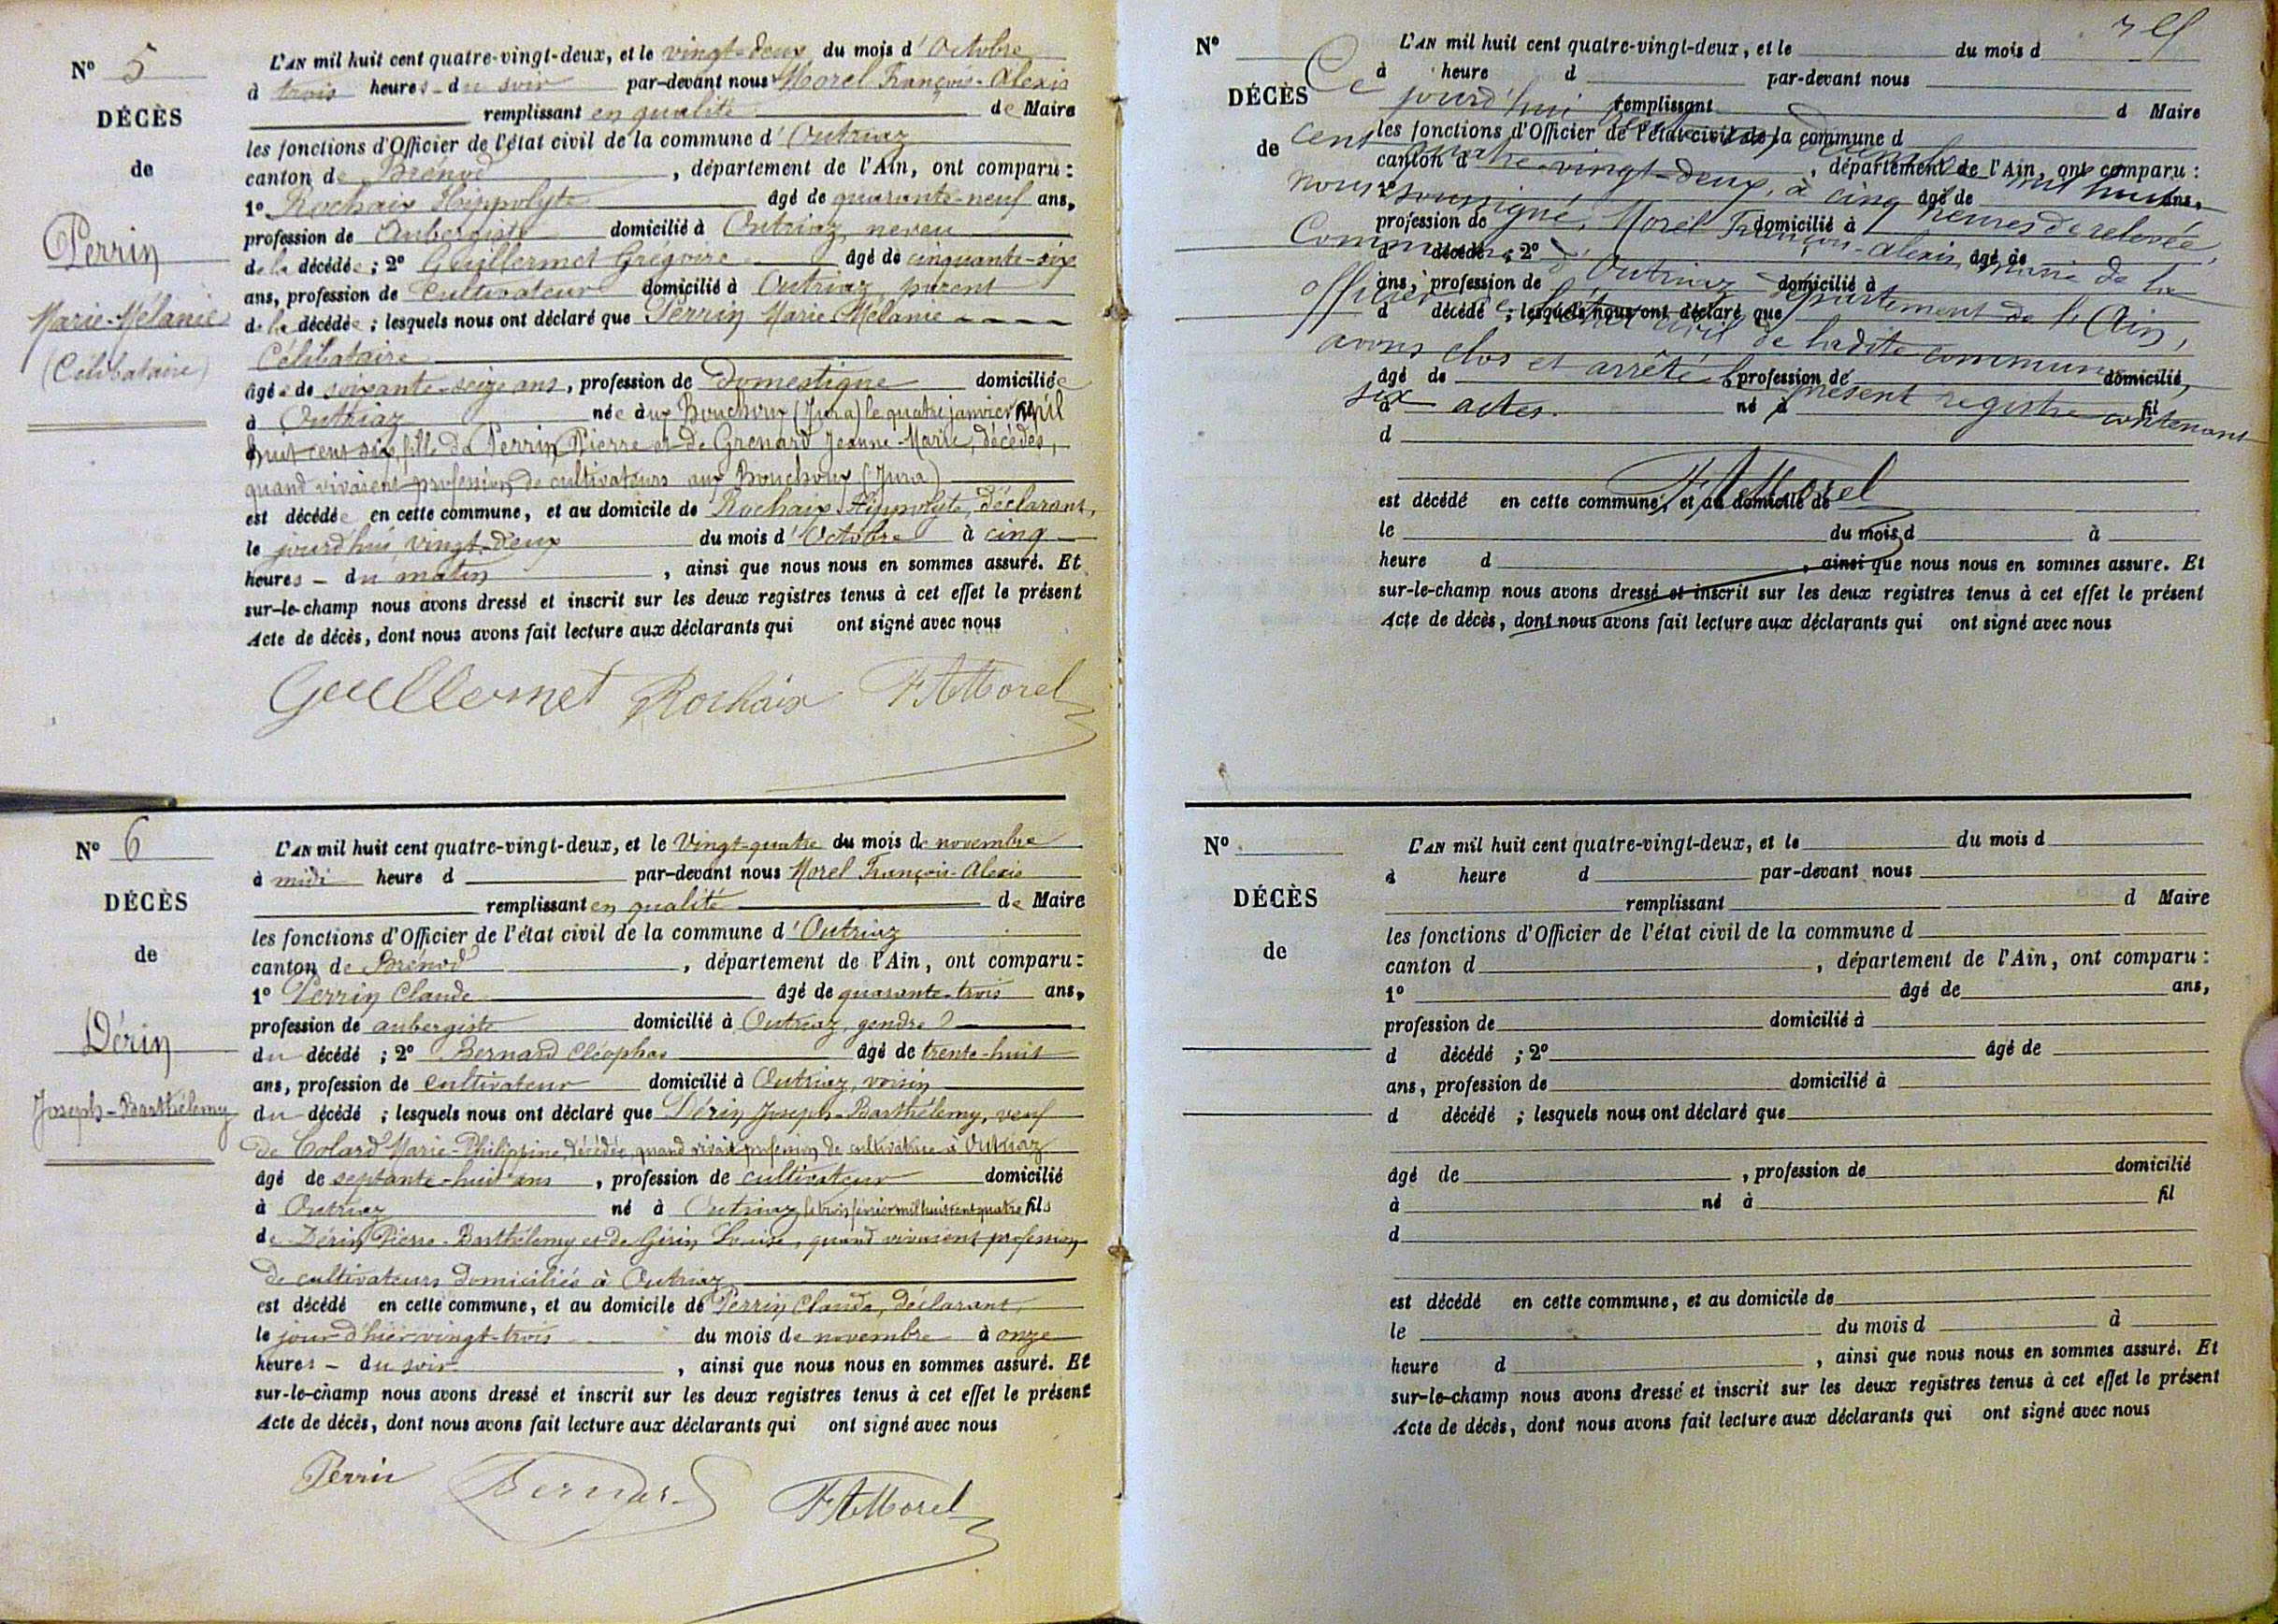 N° 5
DÉCÈS
de
Perrin
Marie-Mélanie
(Célibataire)
L'AN mil huit cent quatre-vingt-deux, et le vingt-deux du mois d'Octobre
à trois heures du soir par-devant nous Morel François-Alexis
remplissant en qualité de Maire
les fonctions d'Officier de l'état civil de la commune d'Outriaz
canton de Brénod, département de l'Ain, ont comparu :
1° Rochaix Hippolyte âgé de quarante-neuf ans,
profession de Aubergiste domicilié à Outriaz, neveu
de la décédée ; 2° Guillermet Grégoire âgé de cinquante-six
ans, profession de Cultivateur domicilié à Outriaz, parent
de la décédée ; lesquels nous ont déclaré que Perrin Marie Mélanie
Célibataire
âgée de soixante-seize ans, profession de domestique domiciliée
à Outriaz née aux Bouchoux (Jura) le quatre janvier mil
huit cent six, fille de Perrin Pierre et de Grenard Jeanne-Marie, décédés,
quand vivaient profession de cultivateurs aux Bouchoux (Jura)
est décédée en cette commune, et au domicile de Rochaix Hippolyte, déclarant,
le jourd'hui vingt-deux du mois d'Octobre à cinq
heures du matin, ainsi que nous nous en sommes assuré. Et
sur-le-champ nous avons dressé et inscrit sur les deux registres tenus à cet effet le présent
Acte de décès, dont nous avons fait lecture aux déclarants qui ont signé avec nous
Guillermet Rochaix FAMorel
N° 6
DÉCÈS
de
Dérin
Joseph-Barthélemy
L'AN mil huit cent quatre-vingt-deux, et le Vingt-quatre du mois de novembre
à midi heure d par-devant nous Morel François-Alexis
remplissant en qualité de Maire
les fonctions d'Officier de l'état civil de la commune d'Outriaz
canton de Brénod, département de l'Ain, ont comparu :
1° Perrin Claude âgé de quarante-trois ans,
profession de aubergiste domicilié à Outriaz, gendre
du décédé ; 2° Bernard Cléophas âgé de trente-huit
ans, profession de Cultivateur domicilié à Outriaz, voisin
du décédé ; lesquels nous ont déclaré que Dérin Joseph-Barthélemy, veuf
de Colard Marie-Philippine, décédée, quand vivait profession de cultivatrice à Outriaz
âgé de septante-huit ans, profession de cultivateur domicilié
à Outriaz né à Outriaz le trois février mil huit cent quatre fils
de Dérin Pierre-Barthélemy et de Girin Louise, quand vivaient profession
de cultivateurs domiciliés à Outriaz
est décédé en cette commune, et au domicile de Perrin Claude, déclarant,
le jour d'hier vingt-trois du mois de novembre à onze
heures du soir, ainsi que nous nous en sommes assuré. Et
sur-le-champ nous avons dressé et inscrit sur les deux registres tenus à cet effet le présent
Acte de décès, dont nous avons fait lecture aux déclarants qui ont signé avec nous
Perrin Bernard FAMorel
N°
DÉCÈS
de
L'AN mil huit cent quatre-vingt-deux, et le du mois d
à heure d par-devant nous
remplissant d Maire
les fonctions d'Officier de l'état civil de la commune d
canton d, département de l'Ain, ont comparu :
1° âgé de ans,
profession de domicilié à
d décédé ; 2° âgé de
ans, profession de domicilié à
d décédé ; lesquels nous ont déclaré que
âgé de, profession de domicilié
à né à fil
d
est décédé en cette commune, et au domicile de
le du mois d à
heure d, ainsi que nous nous en sommes assuré. Et
sur-le-champ nous avons dressé et inscrit sur les deux registres tenus à cet effet le présent
Acte de décès, dont nous avons fait lecture aux déclarants qui ont signé avec nous
Ce jourd'hui décembre mil huit
cent quatre-vingt-deux, à cinq heures de relevée,
nous soussigné, Morel François-Alexis, Maire de la
Commune d'Outriaz département de l'Ain,
officier de l'état civil de ladite commune,
avons clos et arrêté le présent registre contenant
six actes.
FAMorel
N°
DÉCÈS
de
L'AN mil huit cent quatre-vingt-deux, et le du mois d
à heure d par-devant nous
remplissant d Maire
les fonctions d'Officier de l'état civil de la commune d
canton d, département de l'Ain, ont comparu :
1° âgé de ans,
profession de domicilié à
d décédé ; 2° âgé de
ans, profession de domicilié à
d décédé ; lesquels nous ont déclaré que
âgé de, profession de domicilié
à né à fil
d
est décédé en cette commune, et au domicile de
le du mois d à
heure d, ainsi que nous nous en sommes assuré. Et
sur-le-champ nous avons dressé et inscrit sur les deux registres tenus à cet effet le présent
Acte de décès, dont nous avons fait lecture aux déclarants qui ont signé avec nous